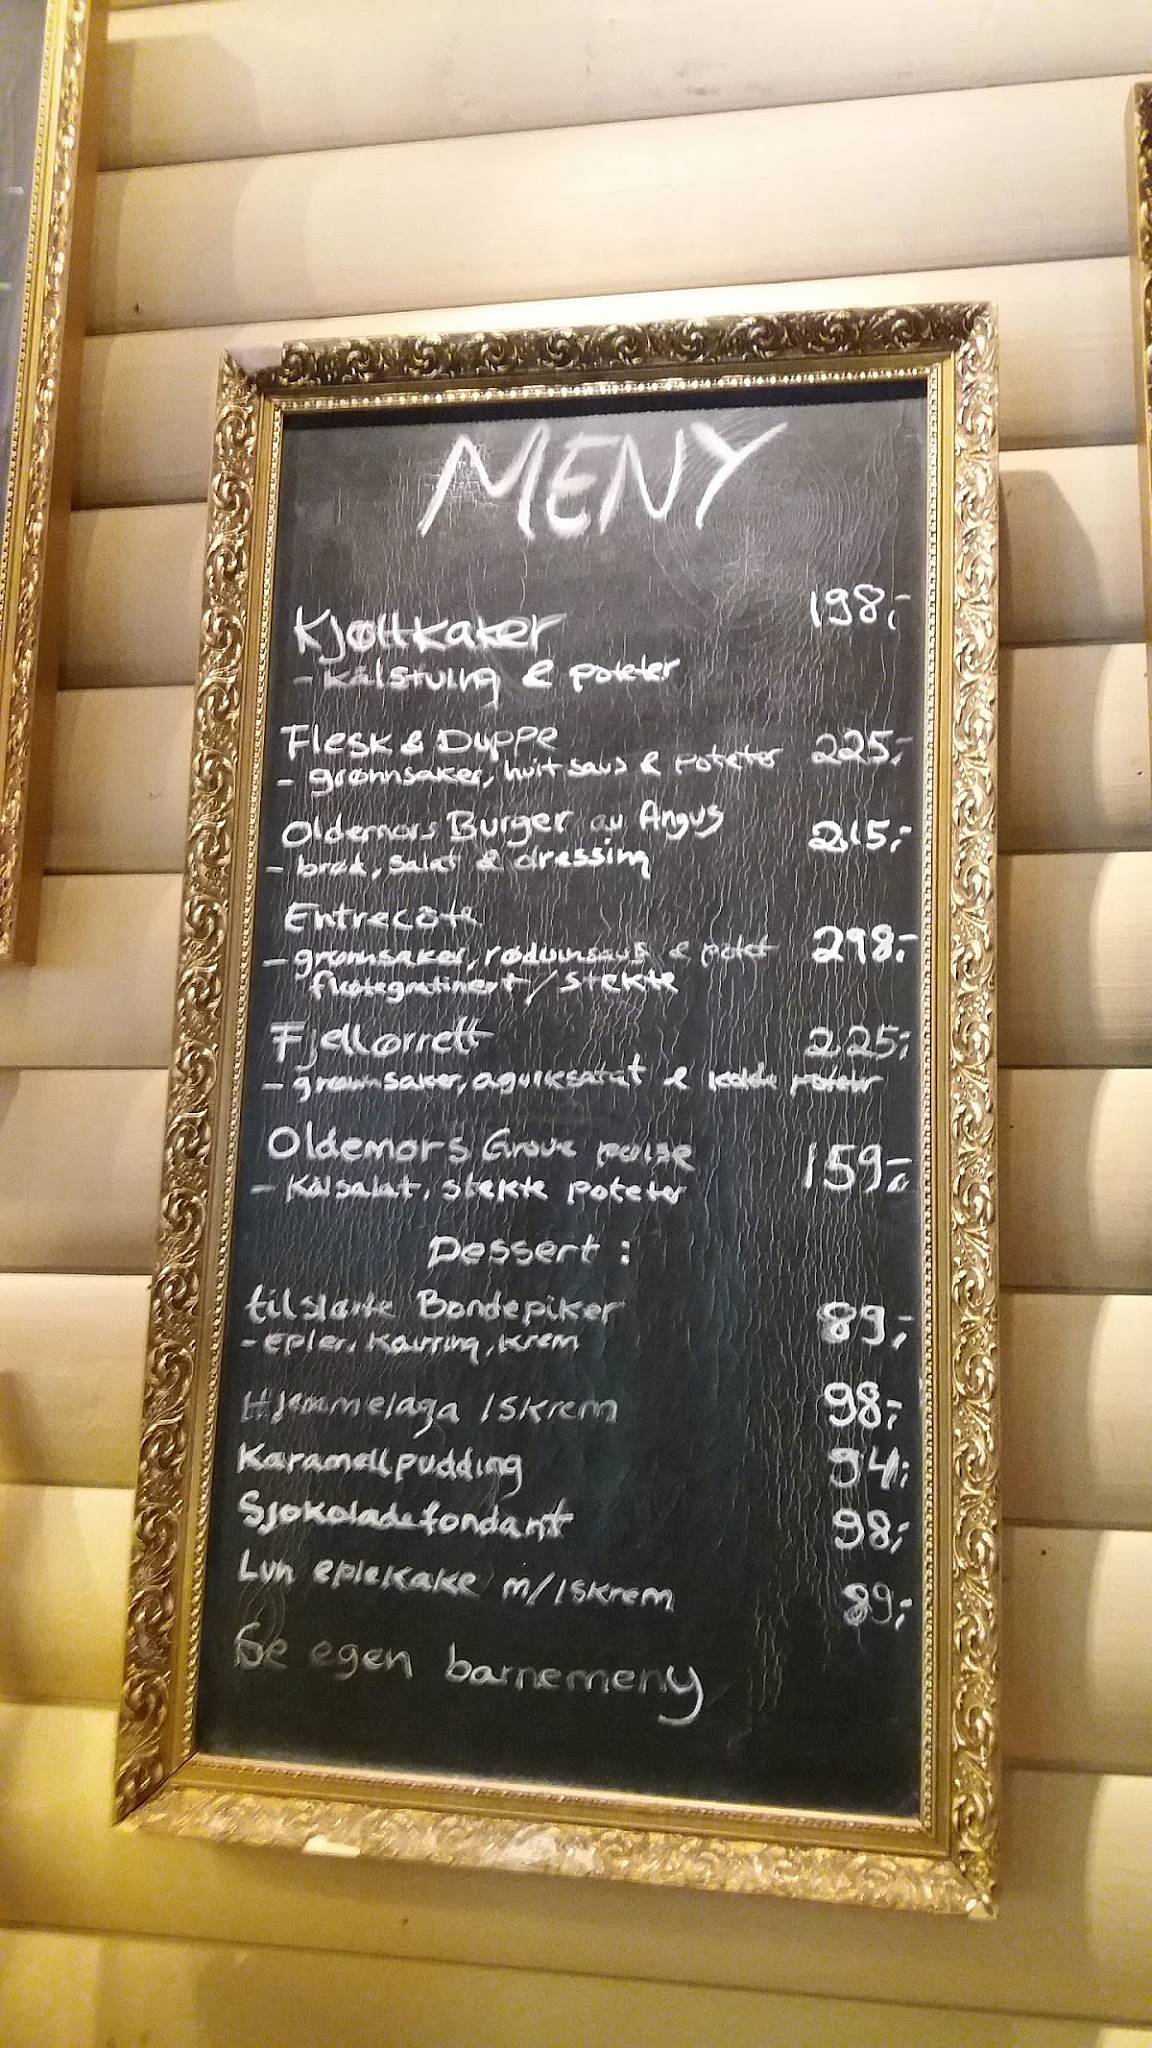 MENY
Kjøttkaker 198,-
- Kålstuing & poteter
Flesk & Duppe 225,-
- grønnsaker, hvit saus & poteter
Oldemors Burger av Angus 215,-
- brød, salat & dressing
Entrecôte 298,-
- grønnsaker, rødvinsaus & potet
fløtegratinert / stekte
Fjellørrett 225,-
- grønnsaker, agurksalat & kokte poteter
Oldemors Grove pølse 159,-
- Kålsalat, stekte poteter
Dessert :
tilslørte Bondepiker 89,-
- epler, Kavring, krem
Hjemmelaga Iskrem 98,-
Karamellpudding 94,-
Sjokoladefondant 98,-
Lun eplekake m/Iskrem 89,-
Se egen barnemeny